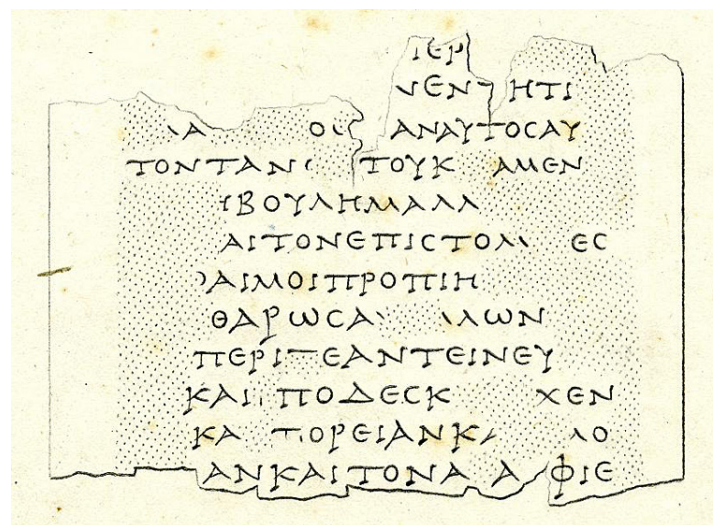 ΙΕΡ
ΕΝ ΗΤΙ
Α Ο ΑΝΑΥΤΟϹΑΥ
ΤΟΝΤΑΝ ΤΟΥΚ ΑΜΕΝ
ΒΟΥΛΗΜΑΛΛ
ΑΙΤΟΝΕΠΙϹΤΟΛ ΕϹ
ΑΙΜΟΙΠΡΟΠΙΗ
ΘΑΡΩϹΑ ΛΩΝ
ΠΕΡΙΤΕΑΝΤΕΙΝΕΥ
ΚΑΙ ΠΟΔΕϹΚ ΧΕΝ
ΚΑ ΟΡΕΙΑΝΚ ΛΟ
ΑΝΚΑΙΤΟΝΑ Α ΦΙΕ